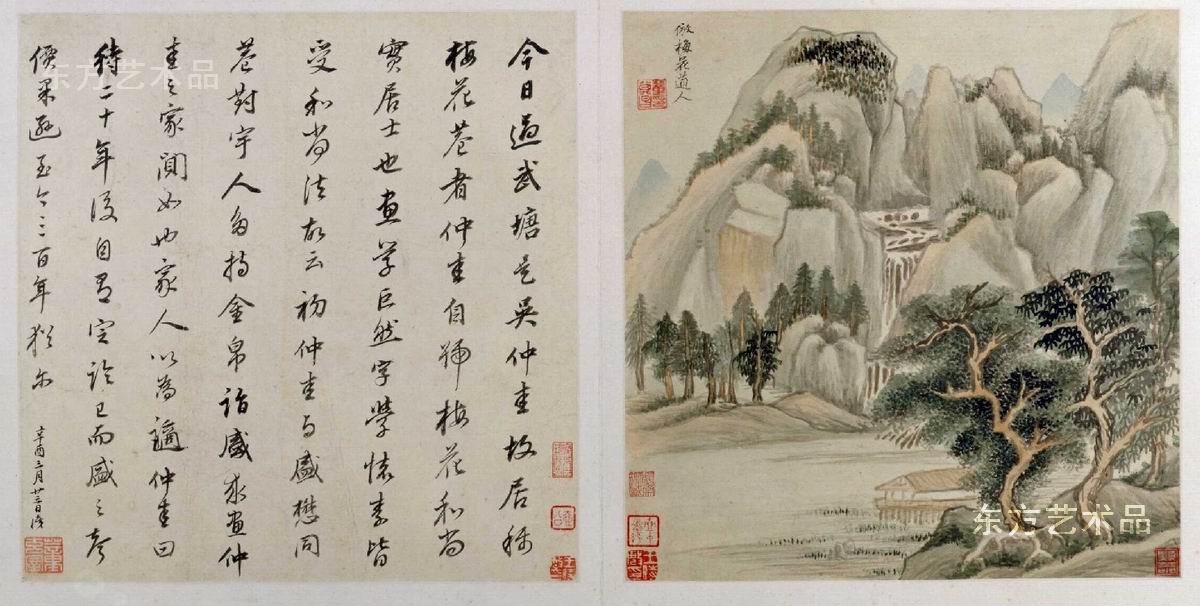 倣梅花道人
今日過武塘是吳仲圭故居稱
梅花菴者仲圭自號梅花和尚
實居士也画學巨然字學懷素皆
受和尚法故云初仲圭与盛懋同
菴對宇人多持金帛詣盛求画仲
圭之家闃如也家人以為適仲圭曰
待二十年後自有定論已而盛之聲
價果遜至今三百年猶尔
辛酉三月廿三日識
东方艺术品
东方艺术品